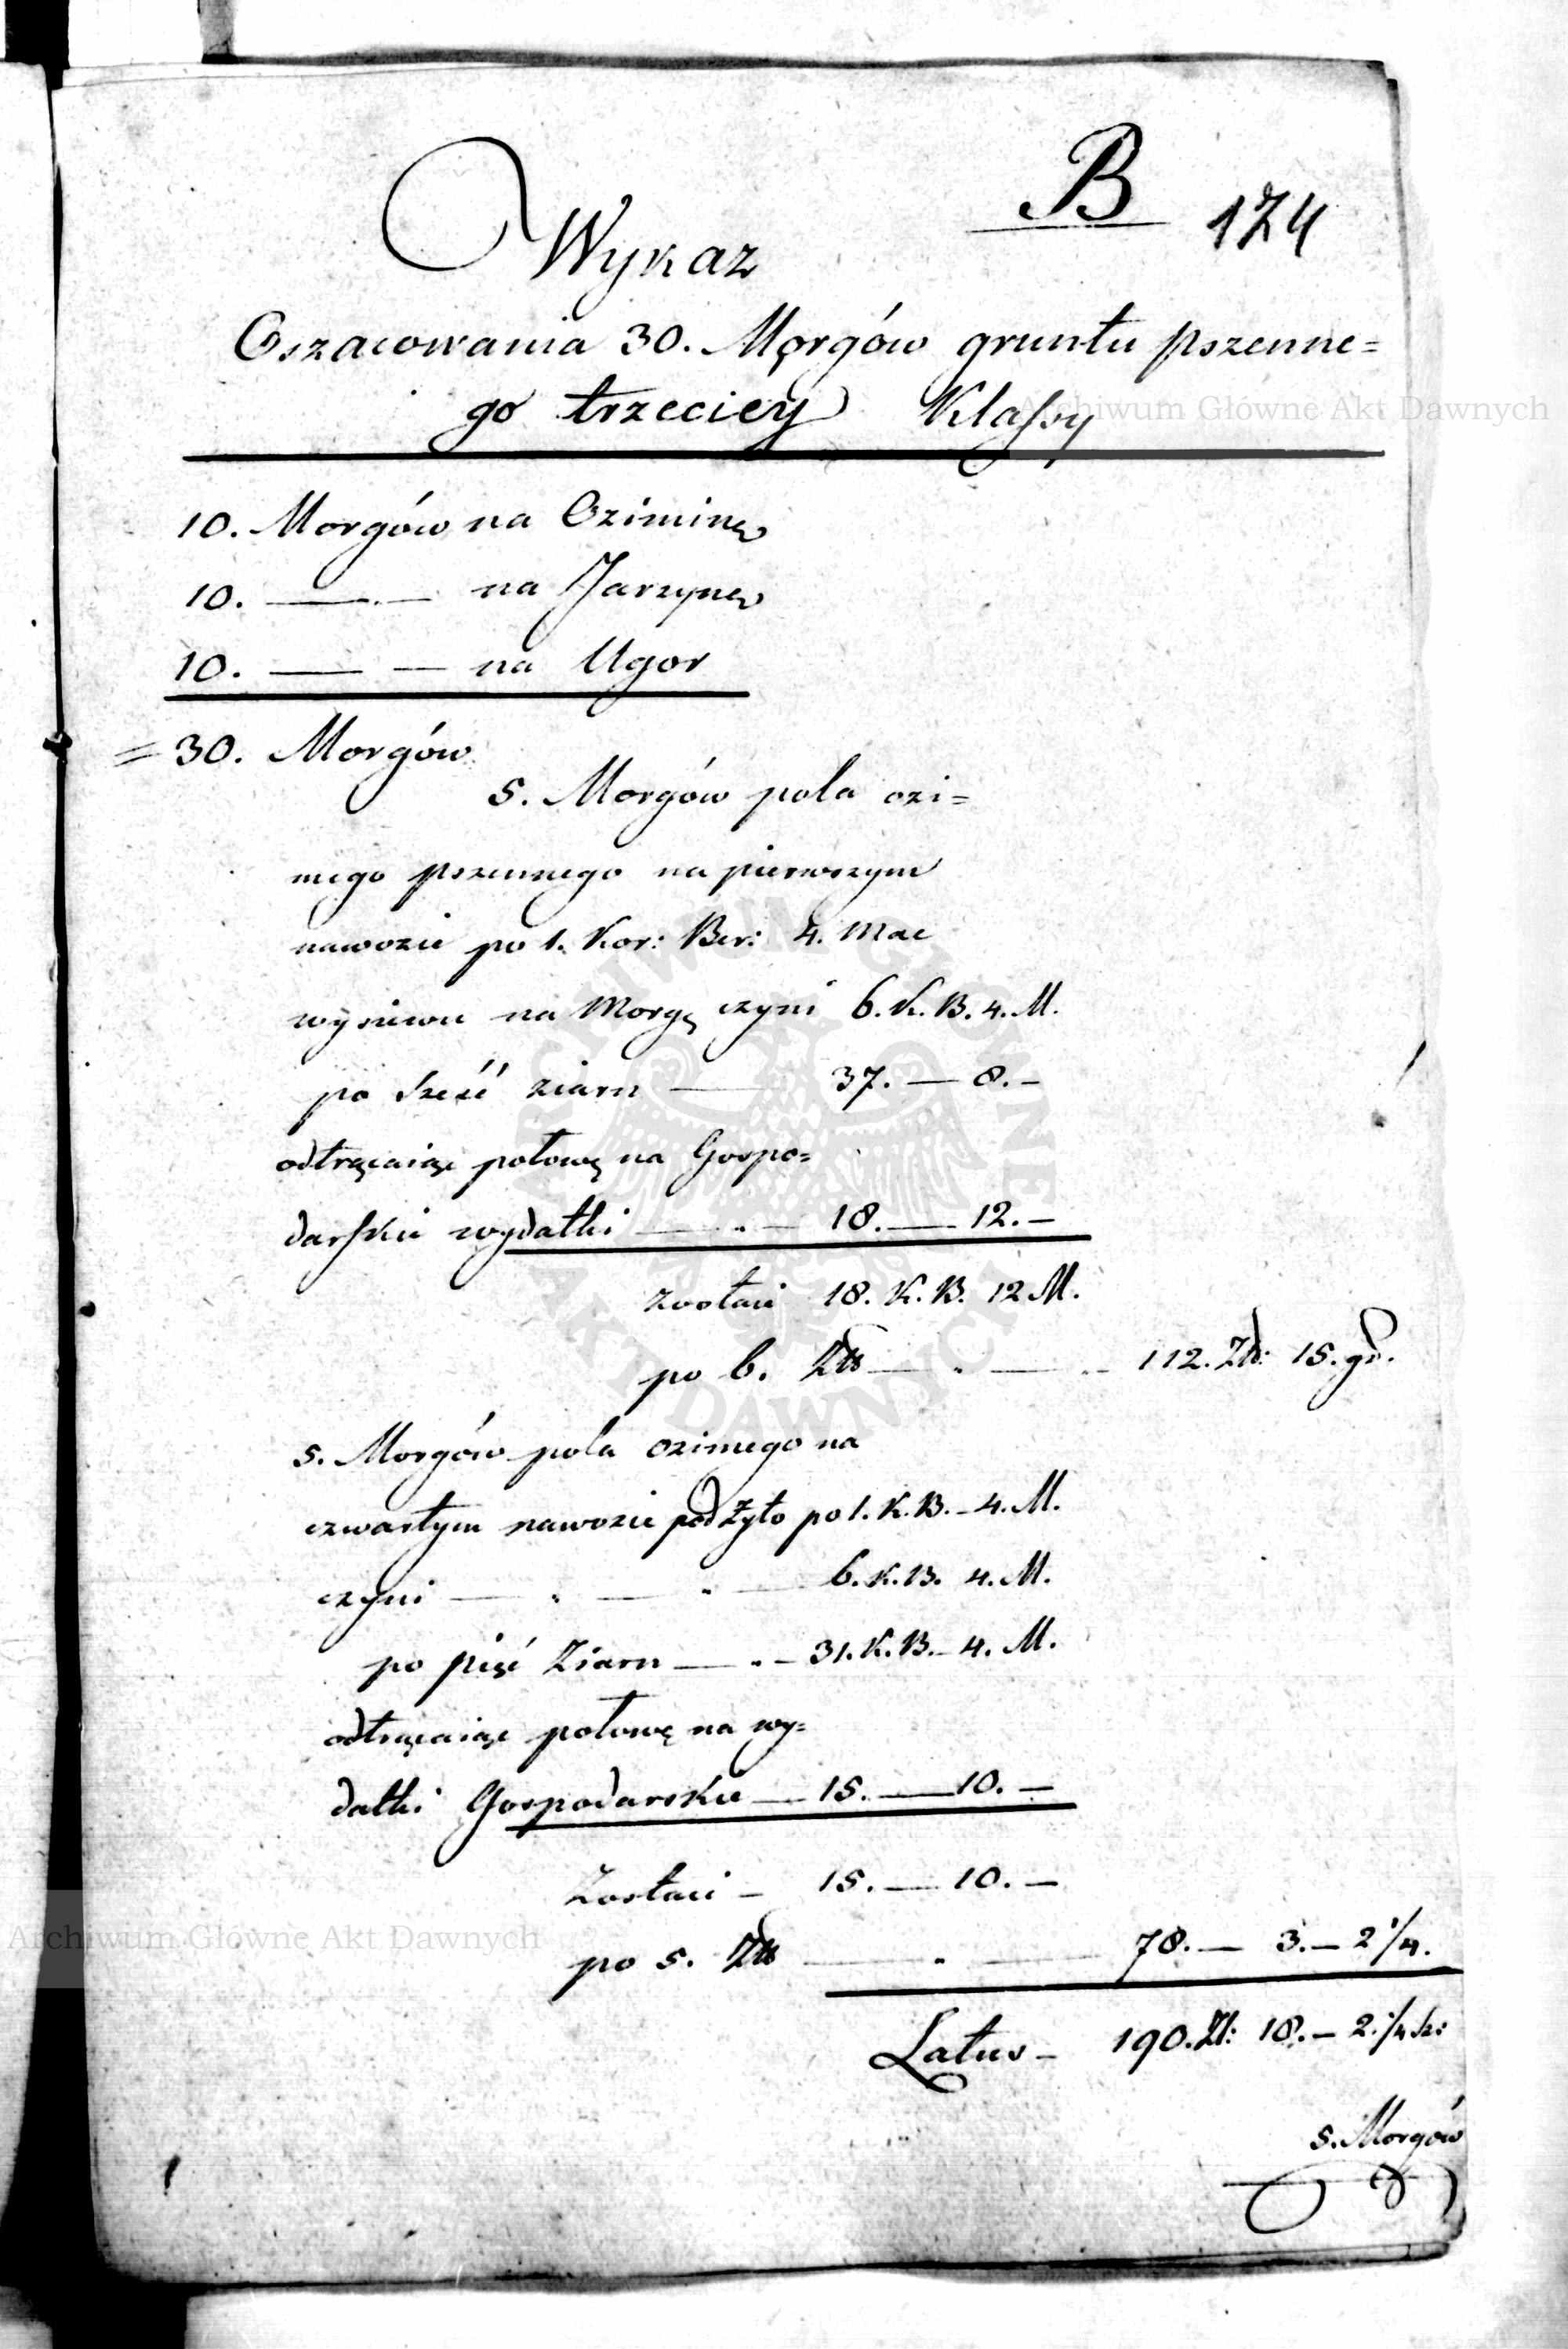 B 174
Wykaz
Oszacowania 30. Morgów gruntu pszenne=
go trzeciey Klassy
10. Morgów na Oziminę
10. — . — na Jarzynę
10. — — na Ugor
= 30. Morgów
5. Morgów pola ozi=
mego pszennego na pierwszym
nawozie po 1. Kor: Ber: 4. Mac
wysiewu na Morgę czyni 6. K. B. 4. M.
po sześć ziarn — 37. — 8. —
odtrącaiąc połowę na Gospo=
darskie wydatki — . — 18. — 12. —
zostaie 18. K. B. 12 M.
po 6. Zł — . — . . 112. Zł: 15. gr.
5. Morgów pola ozimego na
czwartym nawozie pod żyto po 1. K. B. – 4. M.
czyni — . — . — 6. K. B. 4. M.
po pięć Ziarn — . – 31. K. B. – 4. M.
odtrącaiąc połowę na wy=
datki Gospodarskie — 15. — 10. —
Zostaie – 15. — 10. —
po 5. Zł — . — 78. — 3. – 2 1/4.
Latus – 190. Zł: 18. – 2. 1/4 sz:
5. Morgów
Archiwum Główne Akt Dawnych
Archiwum Główne Akt Dawnych
ARCHIWUM GŁÓWNE AKT DAWNYCH